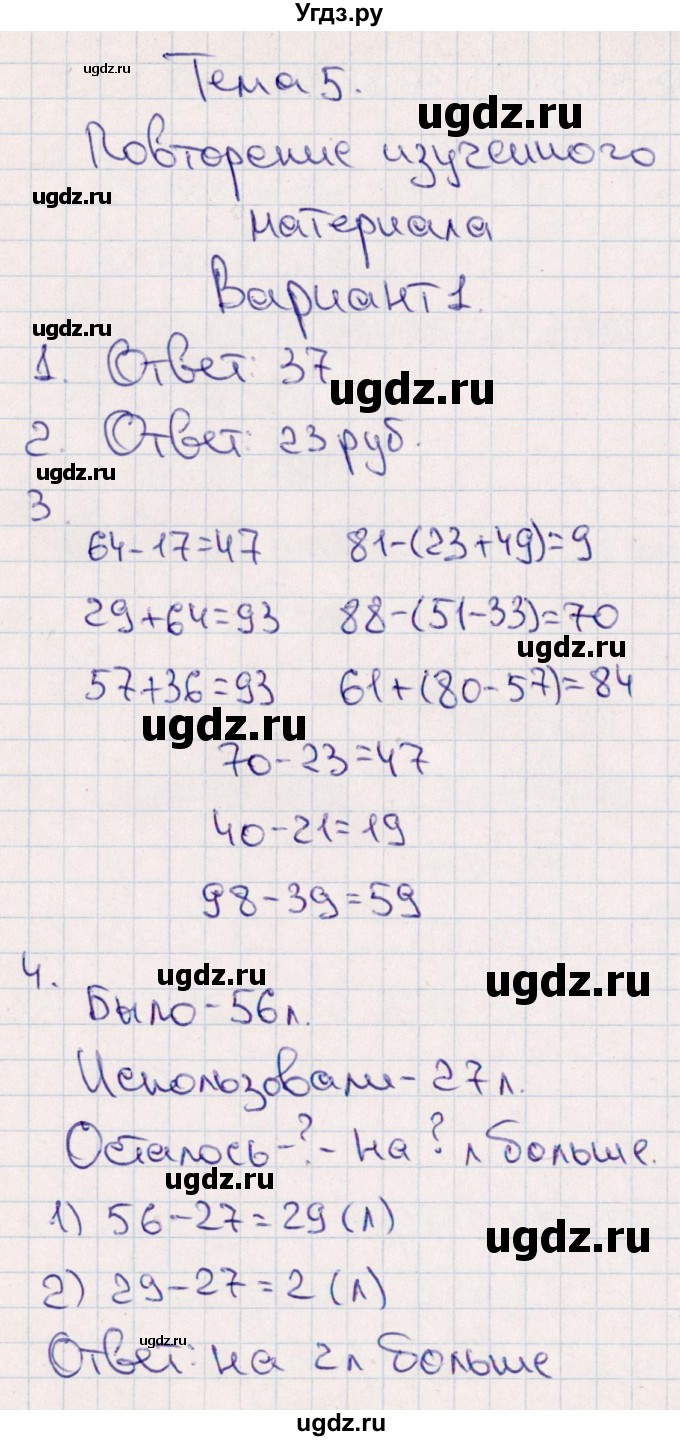 Угдз.ру
ugdz.ru
Тема 5.
ugdz.ru
Повторение изученного
ugdz.ru
материала
Вариант 1.
ugdz.ru
1. Ответ: 37
ugdz.ru
2. Ответ: 23 руб.
ugdz.ru
3.
64-17=47 81-(23+49)=9
29+64=93 88-(51-33)=70
ugdz.ru
57+36=93 61+(80-57)=84
ugdz.ru
70-23=47
40-21=19
98-39=59
4.
ugdz.ru
ugdz.ru
Было-56л.
Использовали-27л.
Осталось-?-на ? л больше.
ugdz.ru
1) 56-27=29(л)
ugdz.ru
2) 29-27=2(л)
ugdz.ru
Ответ: на 2л больше
ugdz.ru